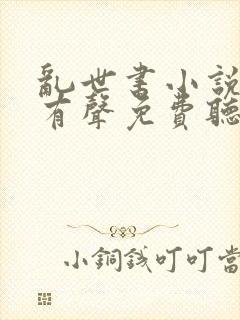 亂世書小說
有聲免費聽
小銅錢叮叮當